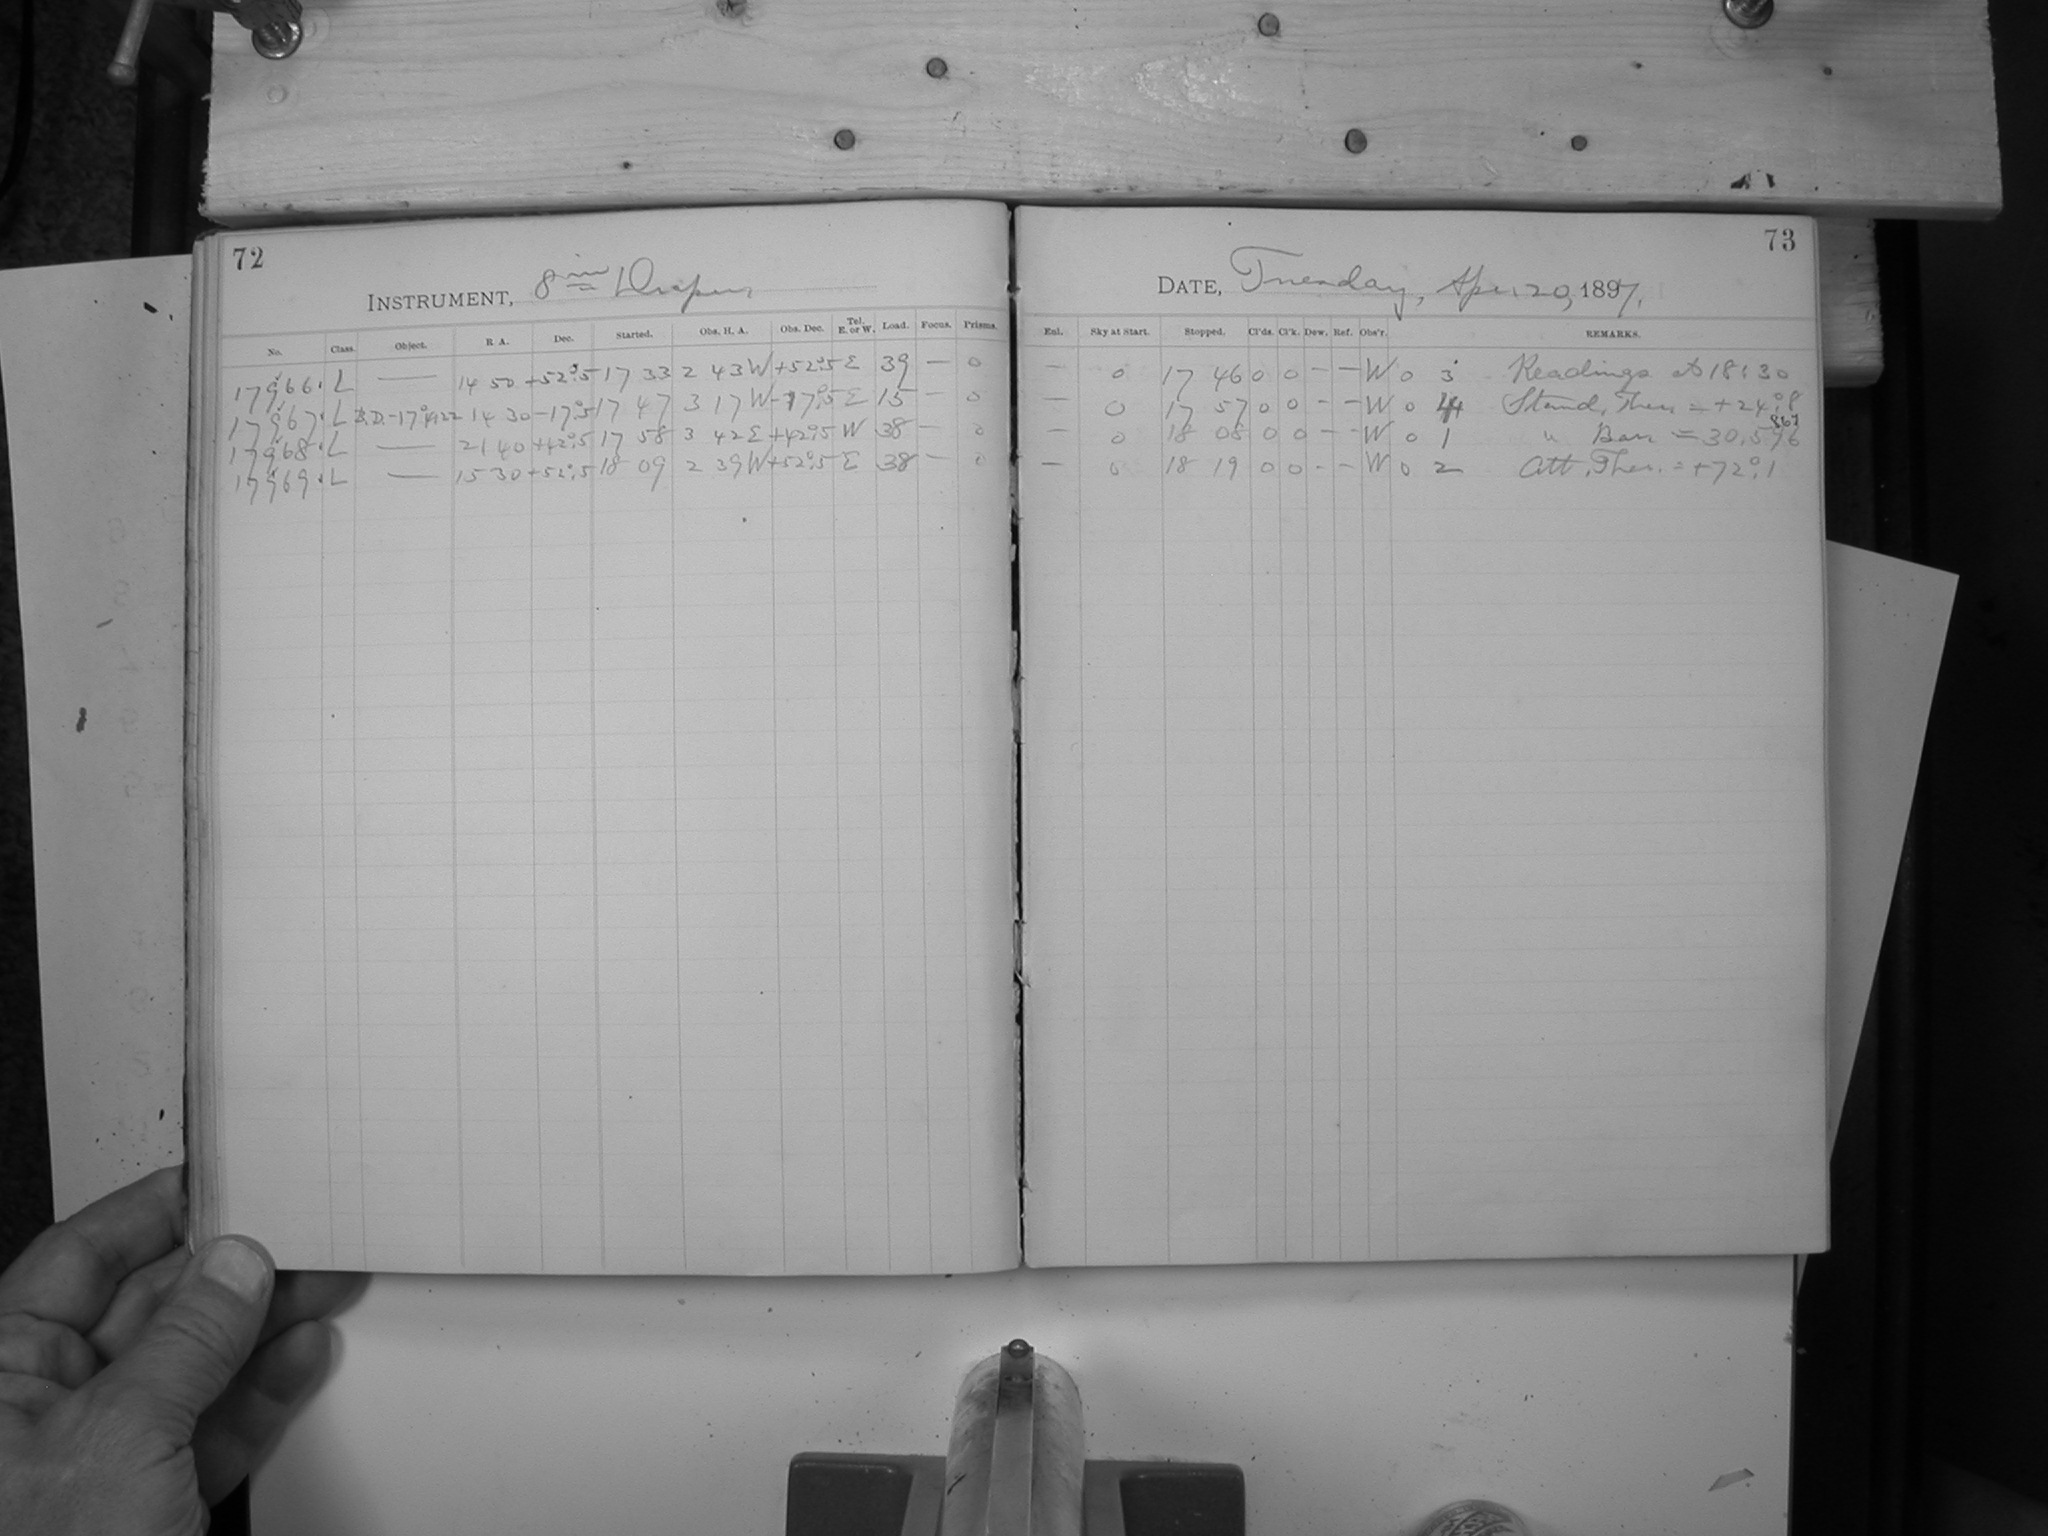 72
INSTRUMENT, 8 in Draper
No. Class. Object. R A. Dec. Started. Obs. H. A. Obs. Dec. Tel. E. or W. Load. Focus. Prisms.
17966. L — 14 50 +52°.5 17 33 2 43 W +52°.5 E 39 — 0
17967. L B.D.-17°4122 14 30 -17°.5 17 47 3 17 W -17°.5 E 15 — 0
17968. L — 21 40 +42°.5 17 58 3 42 E +42°.5 W 38 — 0
17969. L — 15 30 +52°.5 18 09 2 39 W +52°.5 E 38 — 0
73
DATE, Tuesday, Apr. 20, 1897.
Enl. Sky at Start. Stopped. Cl'ds. Cl'k. Dew. Ref. Obs'r. REMARKS.
— 0 17 46 0 0 - - W 0 3 Readings at 18:30
— 0 17 57 0 0 - - W 0 4 Stand. Ther. = +24°.8
— 0 18 08 0 0 - - W 0 1 " Bar. = 30.596
867
— 0 18 19 0 0 - - W 0 2 Att. Ther. = +72°.1